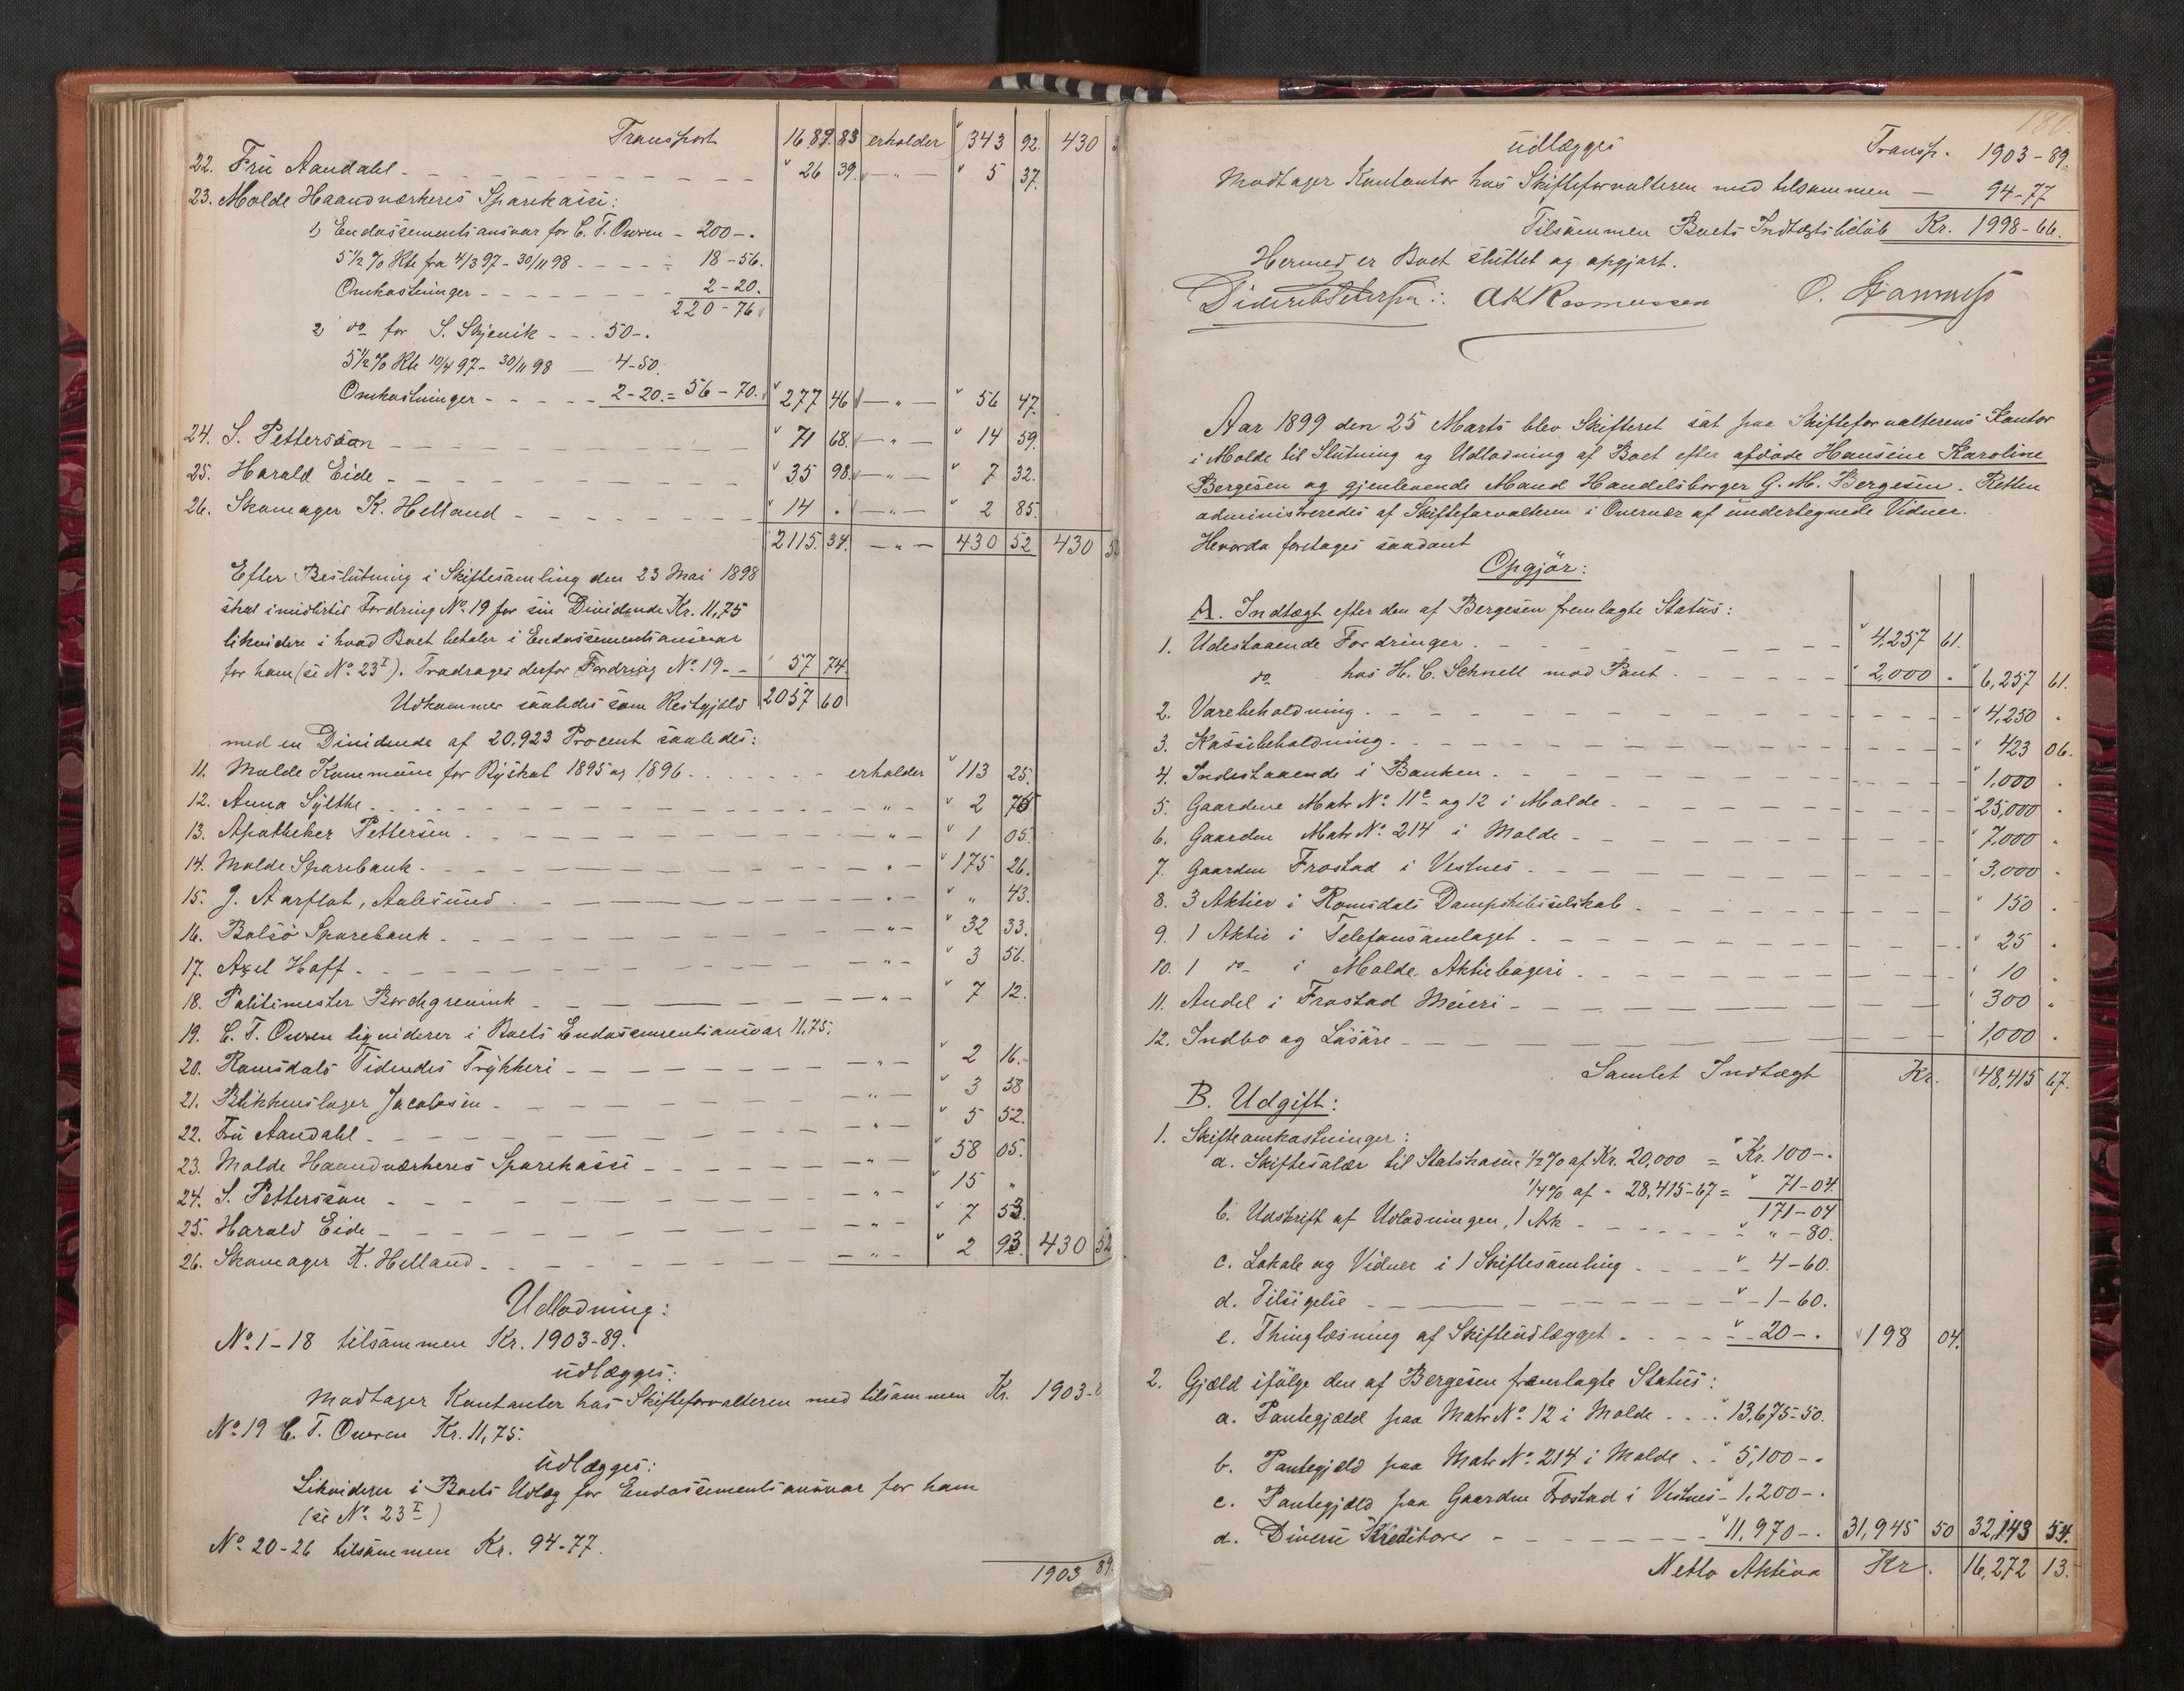 Transport 1689 83 erholder 343 92. 430
22. Fru Aandahl 26 39. " 5 37.
23. Molde Haandværkeres Sparekasse:
1) Endossementsansvar for C. T. Owren - 200-.
5½ % Rte fra 4/3 97 - 30/11 98 18-56.
Omkostninger 2-20.
220-76
2) do for S. Skjevik 50-.
5½ % Rte 10/4 97 - 30/11 98 4-50.
Omkostninger 2-20. = 56-70. 277 46 " 56 47.
24. S. Pettersson 71 68. " 14 59.
25. Harald Eide 35 98. " 7 32.
26. Skomager K. Helland 14 . " 2 85.
2115. 34. " 430 52 430 52
Efter Beslutning i Skiftesamling den 23 Mai 1898
skal imidlertid Fordring No. 19 for sin Dividende Kr. 11,75
likvidere i hvad Boet betaler i Endossementsansvar
for ham (se No. 23 I). Fradrages derfor Fordring No. 19 - 57 74
Udkommer saaledes som Restgjæld 2057 60
med en Dividende af 20,923 Procent saaledes:
11. Molde Kommune for Byskat 1895 og 1896 erholder 113 25.
12. Anna Sylthe " 2 76
13. Apotheker Pettersen " 1 05.
14. Molde Sparebank " 175 26.
15. J. Aarflot, Aalesund " " 43.
16. Bolsö Sparebank " 32 33.
17. Axel Hoff " 3 56.
18. Politimester Borchgrevink " 7 12.
19. C. T. Owren liqviderer i Boets Endossementsansvar 11,75.
20. Romsdals Tidendes Trykkeri " 2 16.
21. Blikkenslager Jacobsen " 3 58
22. Fru Aandahl " 5 52.
23. Molde Haandværkeres Sparekasse " 58 05.
24. S. Pettersson " 15 "
25. Harald Eide " 7 53.
26. Skomager K. Helland " 2 93. 430 52
Udlodning:
No. 1-18 tilsammen Kr. 1903-89.
udlægges:
Modtager Kontanter hos Skifteforvalteren med tilsammen Kr. 1903-8
No. 19 C. T. Owren Kr. 11,75.
udlægges:
Likviderer i Boets Udlæg for Endossementsansvar for ham
(se No. 23 I)
No. 20-26 tilsammen Kr. 94-77.
1903 89.
180.
udlægges Transp. 1903-89.
Modtager Kontanter hos Skifteforvalteren med tilsammen 94-77
Tilsammen Boets Indtægtsbeløb Kr. 1998-66.
Hermed er Boet sluttet og opgjort.
A K Rasmussen
Aar 1899 den 25 Marts blev Skifteret sat paa Skifteforvalterens Kontor
i Molde til Slutning og Udlodning af Boet efter afdöde Hansine Karoline
Bergesen og gjenlevende Mand Handelsborger G. M. Bergesen. Retten
administreredes af Skifteforvalteren i Overvær af undertegnede Vidner.
Hvorda foretages saadant
Opgjör:
A. Indtægt efter den af Bergesen fremlagte Status:
1. Udestaaende Fordringer 4,257 61.
do hos H. C. Schnell mod Pant 2,000 . 6,257 61.
2. Varebeholdning 4,250 .
3. Kassebeholdning 423 06.
4. Indestaaende i Banken 1,000 .
5. Gaardene Matr No. 11a og 12 i Molde 25,000 .
6. Gaarden Matr No. 214 i Molde 7,000 .
7. Gaarden Frostad i Vestnes 3,000 .
8. 3 Aktier i Romsdals Dampskibsselskab 150 .
9. 1 Aktie i Telefonsamlaget 25 .
10. 1 do i Molde Aktiebageri 10 .
11. Andel i Frostad Meieri 300 .
12. Indbo og Lösöre 1,000 .
Samlet Indtægt Kr. 48,415 67.
B. Udgift:
1. Skifteomkostninger:
a. Skiftesalær til Statskassen ½ % af Kr. 20,000 = Kr. 100-.
¼ % af - 28,415-67 = 71-04
171-04
b. Udskrift af Udlodningen, 1 Ark " -80.
c. Lokale og Vidner i 1 Skiftesamling 4-60.
d. Tilsigelse 1-60.
e. Thinglæsning af Skifteudlægget 20-. 198 04.
2. Gjæld ifölge den af Bergesen fremlagte Status:
a. Pantegjæld paa Matr No. 12 i Molde 13,675-50.
b. Pantegjæld paa Matr No. 214 i Molde 5,100-.
c. Pantegjæld paa Gaarden Frostad i Vestnes - 1,200-.
d. Diverse Kreditorer 11,970-. 31,945 50 32,143 54.
Netto Aktiva Kr. 16,272 13.